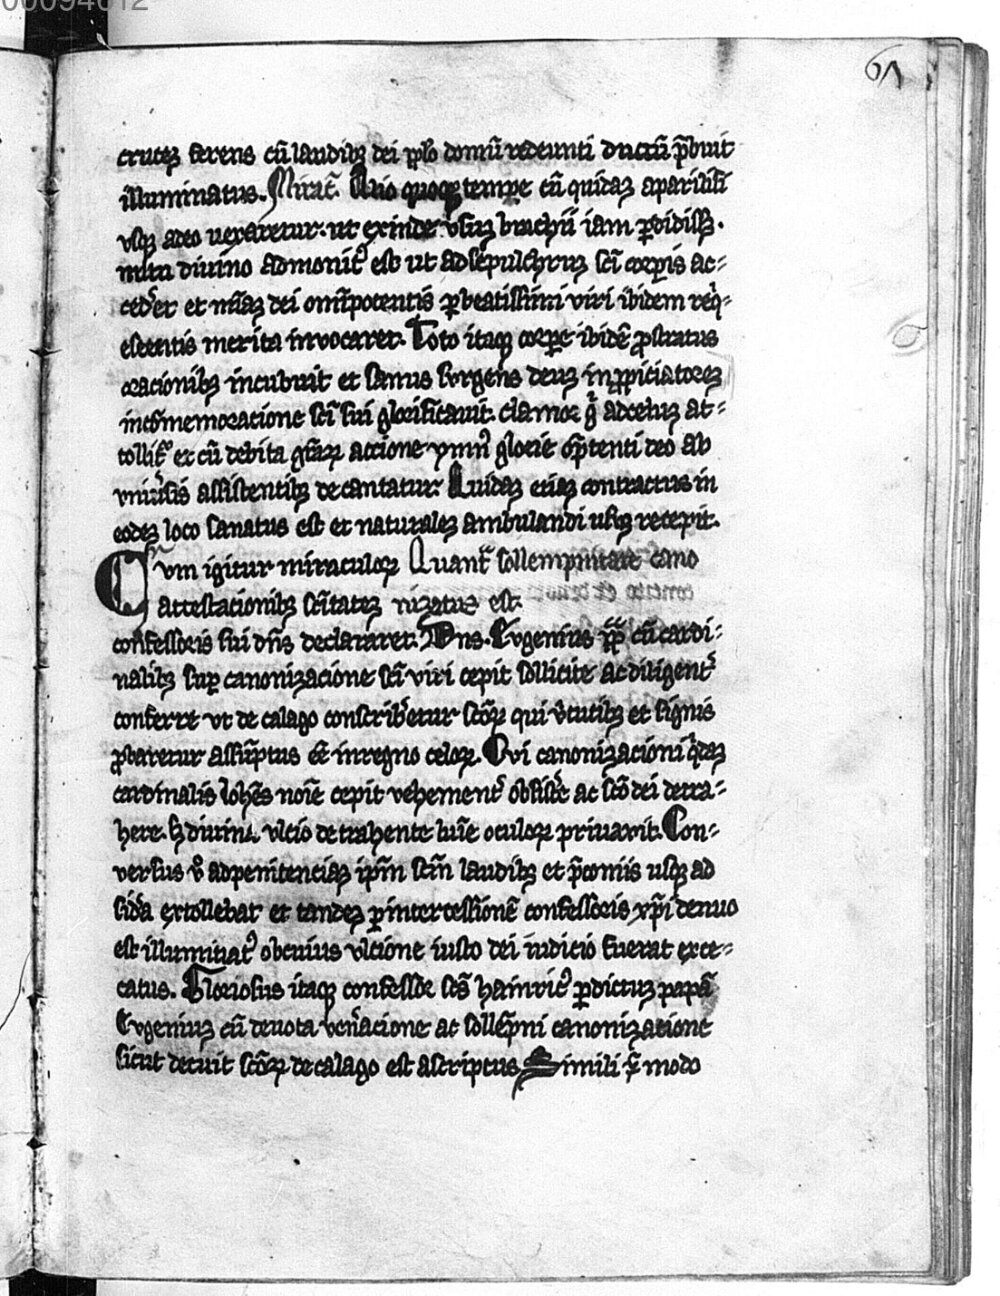 00094612
61
crucẽ ferens cũ laudibꝫ dei pplo domũ redeunti ductũ p̃buit
illuminatus. Mirac̃. Alio quoqꝫ tempe cũ quidaꝫ aparilisi
vsqꝫ adeo vexaretur. ut exinde vsuꝫ brachii iam ꝑdidissꝫ.
nutu diuino admonitꝰ est ut ad sepulchruꝫ sci corpis ac⸗
ced̃et et mĩaꝫ dei omĩpotentis ꝑ beatissimi viri ibidem req̃⸗
escentis merita invocaret. Toto itaqꝫ corpe ibidẽ ꝓstratus
oracionibꝫ incubuit et sanus surgens deuꝫ in ꝓpiciatoreꝫ
in cõmemoracione sci sui glorificauit. clamor g̃ ad celuꝫ at⸗
tollit̃ et cũ debita gr̃aꝝ accione ymnꝰ glorie op̃tenti deo ab
vniũsis assistentibꝫ decantatur Quidaꝫ eciaꝫ contractus in
eodeꝫ loco sanatus est et naturaleꝫ ambulandi usuꝫ recepit.
Cvm igitur miraculoꝝ Quant̃ sollempnitate cano
attestacionibꝫ scĩtateꝫ nizatus est.
confessoris sui dñs declararet. Dns. Eugenius pp̃ cũ cardi⸗
nalibꝫ suꝑ canonizacione sci viri cepit sollicite ac diligentꝰ
conferre vt de catago conscrib̃etur scõꝝ qui v̾tutibꝫ et signis
ꝓbaretur assũptus eẽ in regno celoꝝ. Cui canonizacioni q̃daꝫ
cardinalis Iohẽs noĩe cepit vehementꝰ obsist̃e ac scõ dei detra⸗
here. sꝫ diuina vltio detrahente lumĩe oculoꝝ priuauit. Con⸗
versus v̾ ad penitenciaꝫ ip̃m scm̃ laudibꝫ et p̃coniis usqꝫ ad
sid̃a extollebat et tandeꝫ ꝑ intercessionẽ confessoris xp̃i denuo
est illuminatꝰ ob cuius vltione iusto dei iudicio fuerat exce⸗
catus. Gloriosus itaqꝫ confessor scs̃ hainricꝰ ꝑ dictuꝫ papã
Eugeniuꝫ cũ deuota ven̾acione ac sollẽpni canonizacione
sicut decuit scõꝝ decalago est ascriptus Simili modo